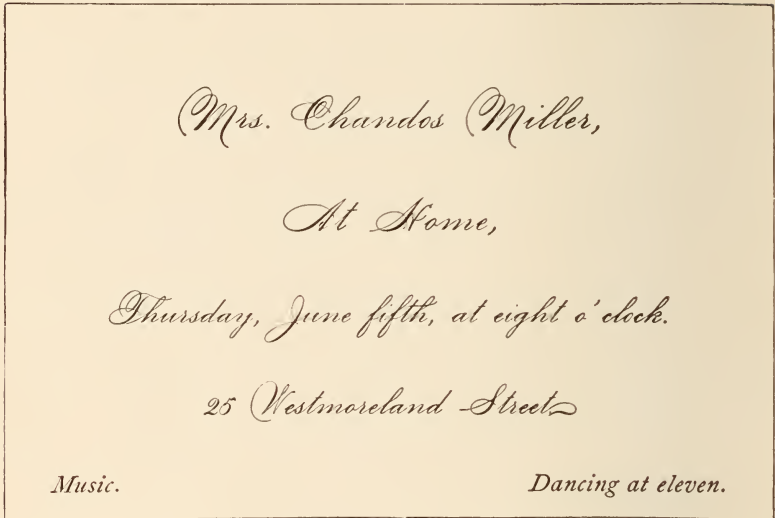 Mrs. Chandos Miller,
At Home,
Thursday, June fifth, at eight o'clock.
25 Westmoreland Street
Music. Dancing at eleven.